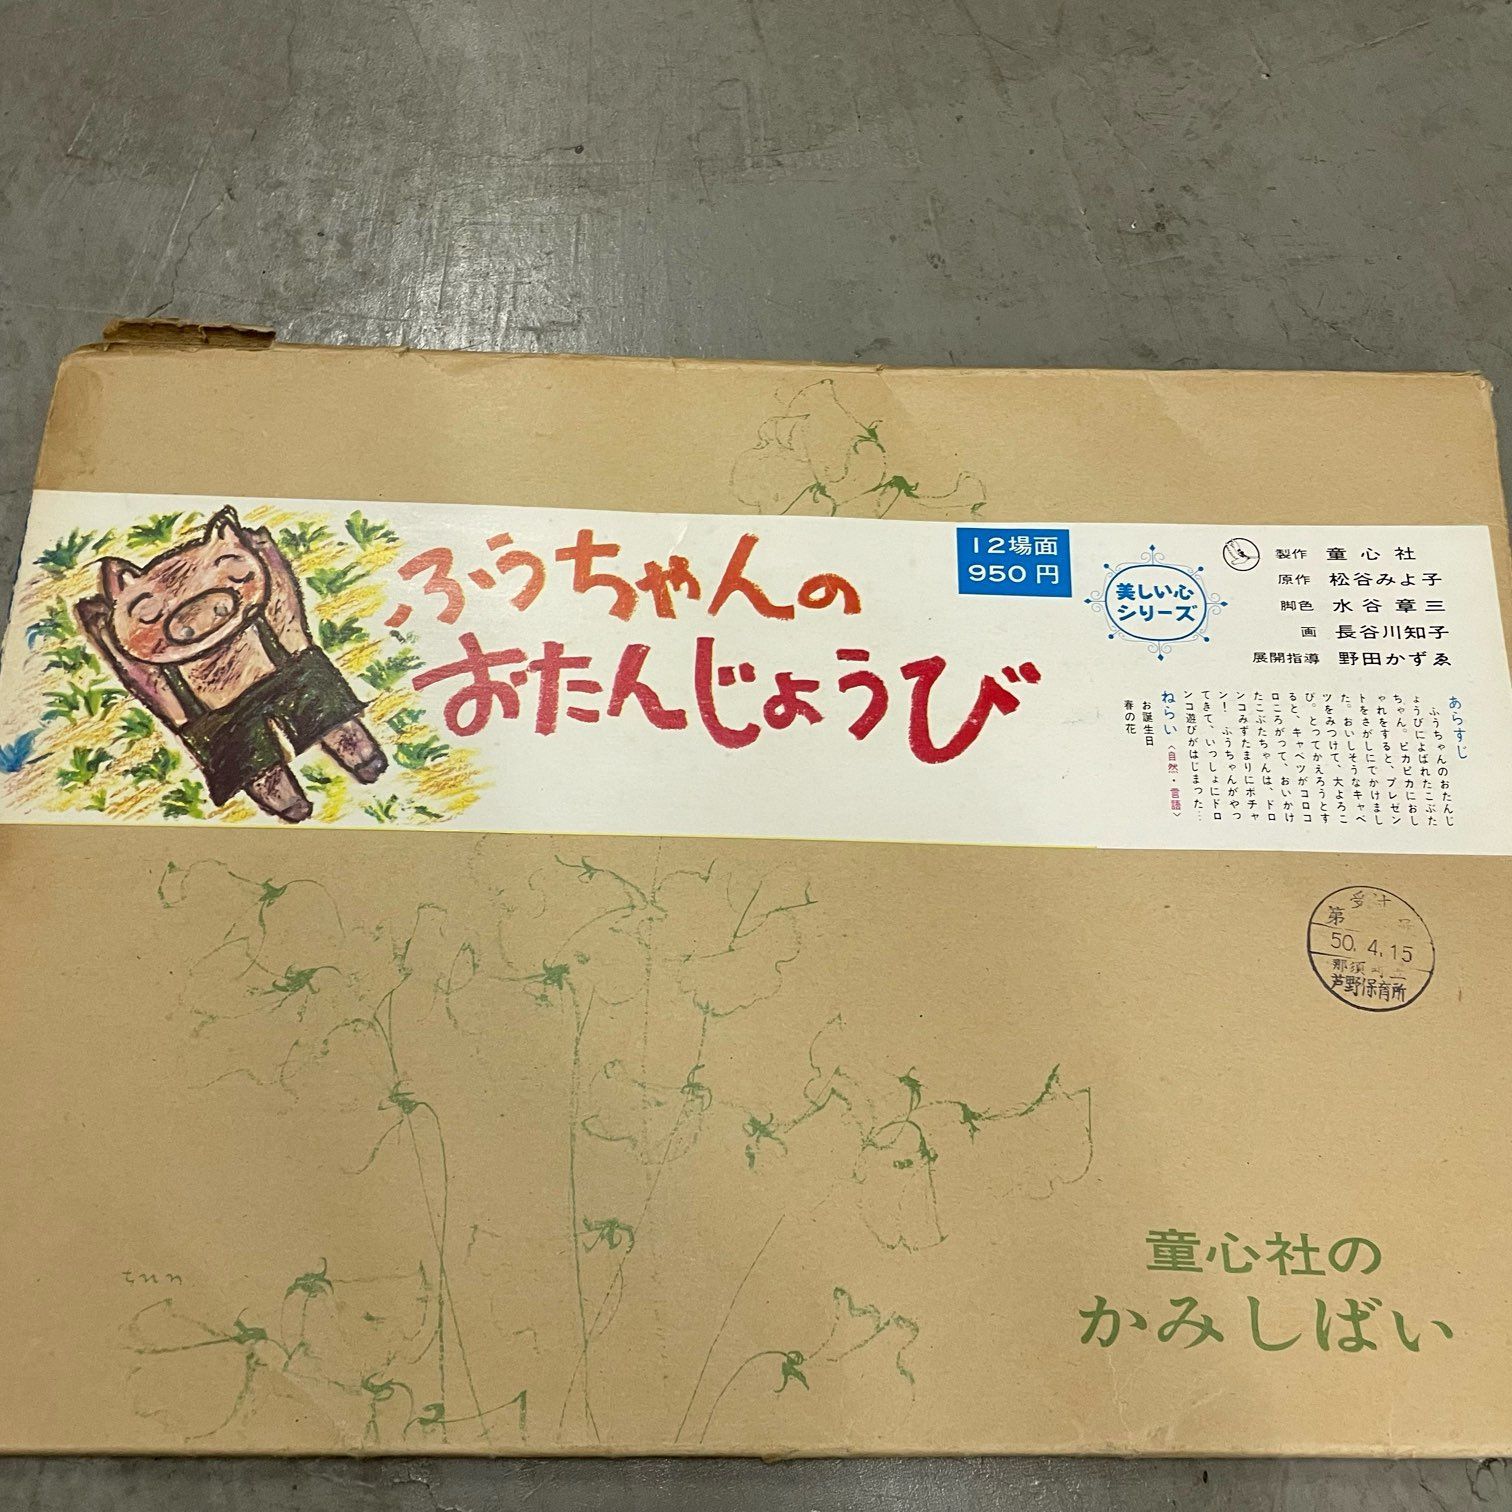 ふうちゃんの
おたんじょうび
12場面
950円
美しい心
シリーズ
製作 童心社
原作 松谷みよ子
脚色 水谷章三
画 長谷川知子
展開指導 野田かずゑ
あらすじ
ふうちゃんのおたんじ
ょうびによばれたこぶた
ちゃん。ピカピカにおし
ゃれをすると、プレゼン
トをさがしにでかけまし
た。おいしそうなキャベ
ツをみつけて、大よろこ
び。とってかえろうとす
ると、キャベツがコロコ
ロころがって、おいかけ
たこぶたちゃんは、ドロ
ンコみずたまりにボチャ
ン！ ふうちゃんがやっ
てきて、いっしょにドロ
ンコ遊びがはじまった…
ねらい〈自然・言語〉
お誕生日
春の花
第
50.4.15
那須
芦野保育所
童心社の
かみしばい